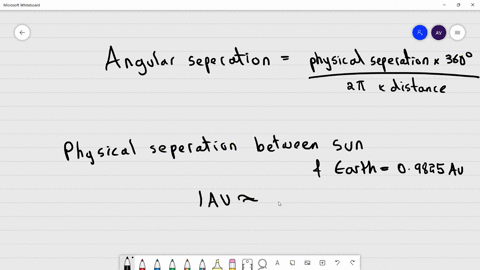 Microsoft Whiteboard
AV
Angular seperation = physical seperation x 360°
2π x distance
Physical seperation between sun
& Earth = 0.9825 AU
1 AU ≈